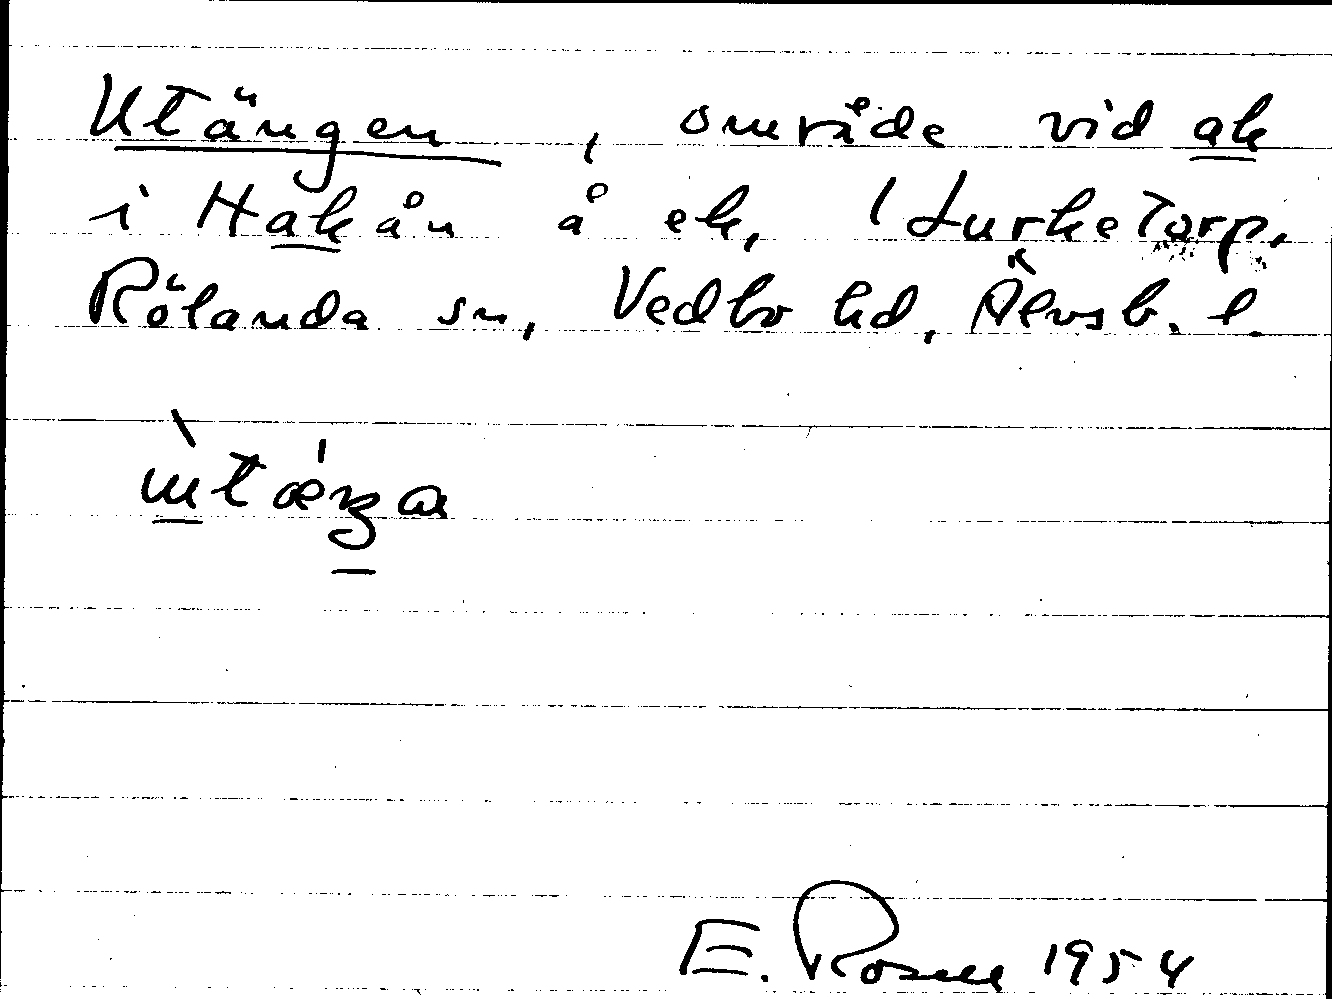 Utängen, område vid ak
i Hakån å ek, 1 Lurketorp.
Rölanda sn, Vedbo hd, Älvsb. l.
E. Rosell 1954